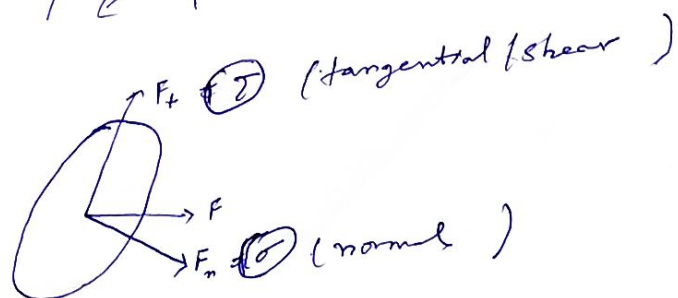 F_t τ (tangential / shear )
F
F_n σ (normal )